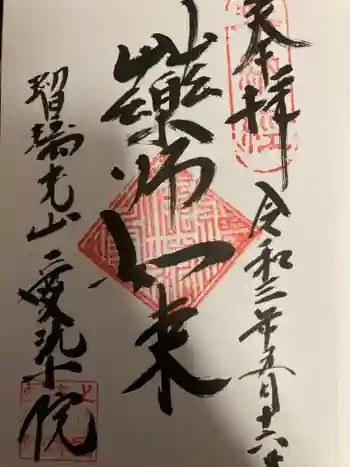 奉拝
令和三年五月十六日
藥師如来
瑠璃光山
愛染院